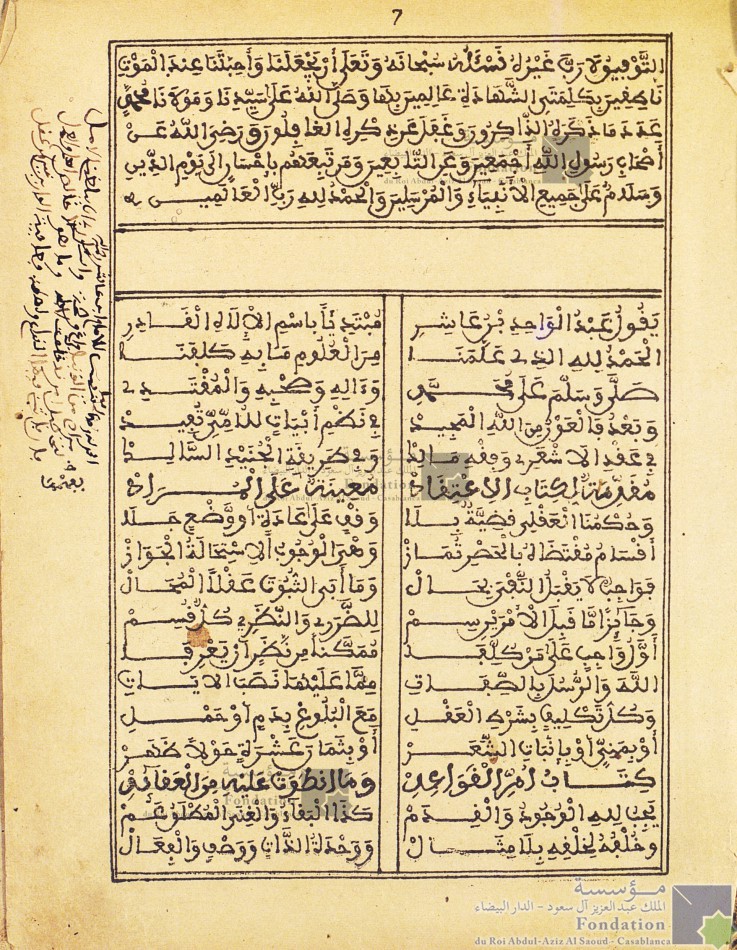 7
التوفيق لا رب غيره نسئله سبحانه وتعلى أن يجعلنا وأحبتنا عند الموت
ناطقين بكلمتي الشهادة عالمين بها وصلى الله على سيدنا ومولانا محمد
عدد ما ذكره الذاكرون وغفل عن ذكره الغافلون ورضي الله عن
أصحاب رسول الله أجمعين وعن التابعين ومن تبعهم بإحسان إلى يوم الدين
وسلام على جميع الأنبياء والمرسلين والحمد لله رب العالمين
يقول عبد الواحد بن عاشر مبتدئا باسم الإلاه القادر
الحمد لله الذي علمنا من العلوم ما به كلفنا
صلى وسلم على محمد وءاله وصحبه والمقتدي
وبعد فالعون من الله المجيد في نظم أبيات للأمي تفيد
في عقد الاشعري وفقه مالك وفي طريقة الجنيد السالك
مقدمة لكتاب الاعتقاد معينة على المراد
وحكمنا العقلي قضية بلا وقف على عادة أو وضع جلا
أقسام مقتضاه بالحصر تماز وهي الوجوب الاستحالة الجواز
فواجب لا يقبل النفي بحال وما أبى الثبوت عقلا المحال
وجائزا ما قبل الأمرين سم للضروري والنظري كل قسم
أول واجب على من كلفا ممكنا من نظر أن يعرفا
الله والرسل بالصفات مما عليها نصب الايات
وكل تكليف بشرط العقل مع البلوغ بدم أو حمل
أو بمني أو بإنبات الشعر أو بثمان عشرة حولا ظهر
كتاب أم القواعد وما انطوت عليه من العقائد
يجب لله الوجود والقدم كذا البقاء والغنى المطلق عم
وخلفه لخلقه بلا مثال ووحدة الذات ووصف والفعال
مؤسسة
الملك عبد العزيز آل سعود - الدار البيضاء
Fondation
du Roi Abdul-Aziz Al Saoud - Casablanca